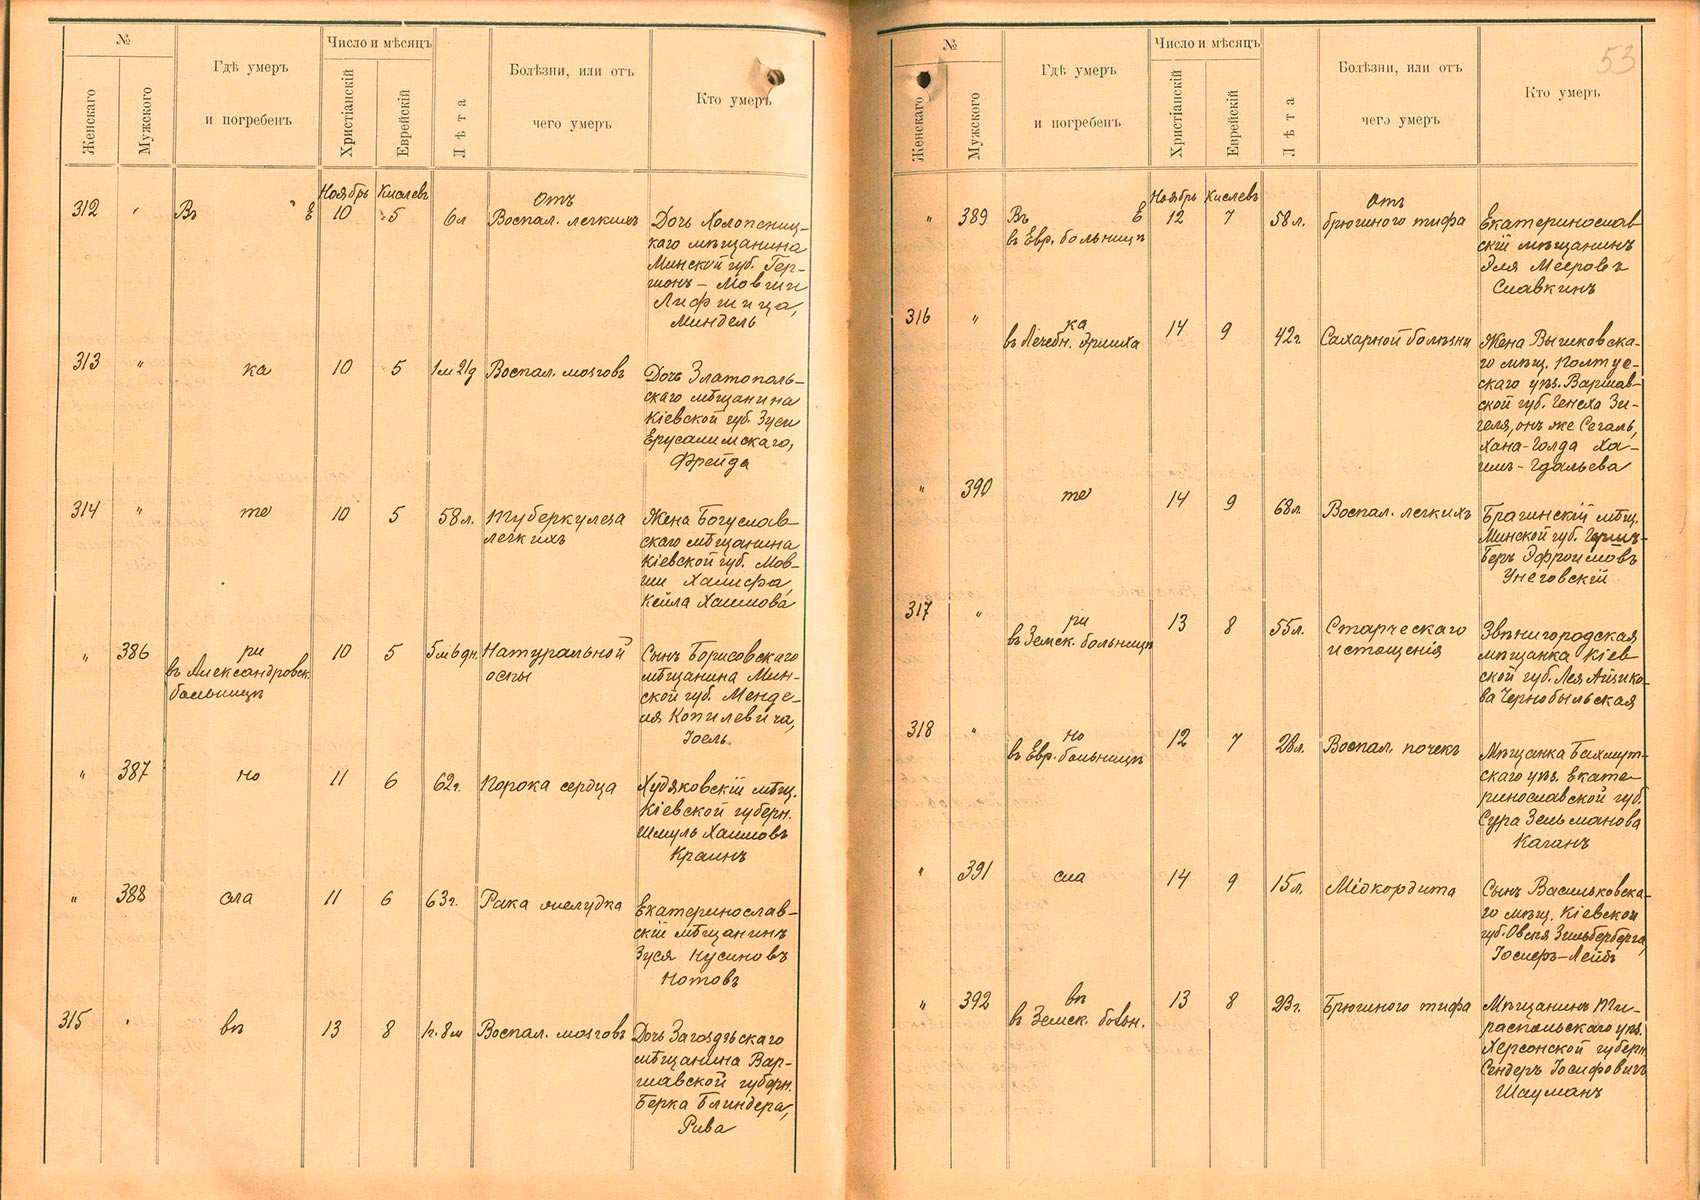 №
Женскаго
Мужского
Гдѣ умеръ
и погребенъ
Число и мѣсяцъ
Христіанскій
Еврейскій
Лѣта
Болѣзни, или отъ
чего умеръ
Кто умеръ
Ноябрь Кислевъ
отъ
312 " Въ Е 10 5 6л Воспал. легкихъ Дочь Холопенич-
каго мѣщанина
Минской губ. Гер-
шонъ - Мовши
Лифшица,
Миндель
313 " ка 10 5 1м 21д Воспал. мозговъ Дочь Златополь-
скаго мѣщанина
Кіевской губ. Зуси
Ерусалимскаго,
Фрейда
314 " те 10 5 58л. Туберкулеза Жена Богуслав-
легкихъ скаго мѣщанина
Кіевской губ. Мов-
ши Халифа
Кейла Хаимова
" 386 ри 10 5 5м 6дн. Натуральной Сынъ Борисовскаго
въ Александровск. оспы мѣщанина Мин-
больницѣ ской губ. Менде-
ля Копилевича,
Іоель.
" 387 но 11 6 62г. Порока сердца Худяковскій мѣщ.
Кіевской губерн.
Шмуль Хаимовъ
Краинъ
" 388 сла 11 6 63г. Рака желудка Екатеринослав-
скій мѣщанинъ
Зуся Нусиновъ
Нотовъ
315 " вѣ 13 8 1г. 8м Воспал. мозговъ Дочь Загоздзьскаго
мѣщанина Вар-
шавской губерн.
Берка Блиндера,
Рива
53
№
Женскаго
Мужского
Гдѣ умеръ
и погребенъ
Число и мѣсяцъ
Христіанскій
Еврейскій
Лѣта
Болѣзни, или отъ
чего умеръ
Кто умеръ
Ноябрь Кислевъ
отъ
" 389 Въ Е 12 7 58л. брюшного тифа Екатеринослав
въ Евр. больницѣ скій мѣщанинъ
Эля Мееровъ
Славкинъ
316 " ка 14 9 42г. Сахарной болѣзни Жена Вышковска-
въ Лечебн. Эришха го мѣщ. Полтус-
скаго уѣз. Варшав-
ской губ. Генеха Зи-
геля, онъ же Сегаль,
Хана-Голда Ха-
имъ-Гдальева
" 390 те 14 9 68л Воспал. легкихъ Брагинскій мѣщ.
Минской губ. Гершъ-
Беръ Эфроимовъ
Унеговскій
317 " ри 13 8 55л. Старческаго Звѣнигородская
въ Земск. больницѣ истощенія мѣщанка Кіев
ской губ. Лея Айзико-
ва Чернобыльская
318 " но 12 7 28л. Воспал. почекъ Мѣщанка Бахмут-
въ Евр. больницѣ скаго уѣз. Екате-
ринославской губ.
Сура Зельманова
Каганъ
" 391 сла 14 9 15л. Міокордита Сынъ Васильковска-
го мѣщ. Кіевской
губ. Овсѣя Зильберберга,
Іосифъ-Лейбъ
" 392 вѣ 13 8 23г. Брюшного тифа Мѣщанинъ Ти-
въ Земск. больн. распольскаго уѣз.
Херсонской губерн.
Сендеръ Іосифовичъ
Шауманъ